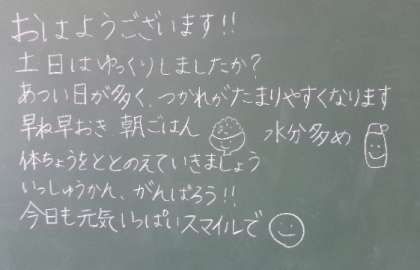 おはようございます!!
土日はゆっくりしましたか?
あつい日が多く、つかれがたまりやすくなります
早ね早おき 朝ごはん 水分多め
体ちょうをととのえていきましょう
いっしゅうかん、がんばろう!!
今日も元気いっぱいスマイルで